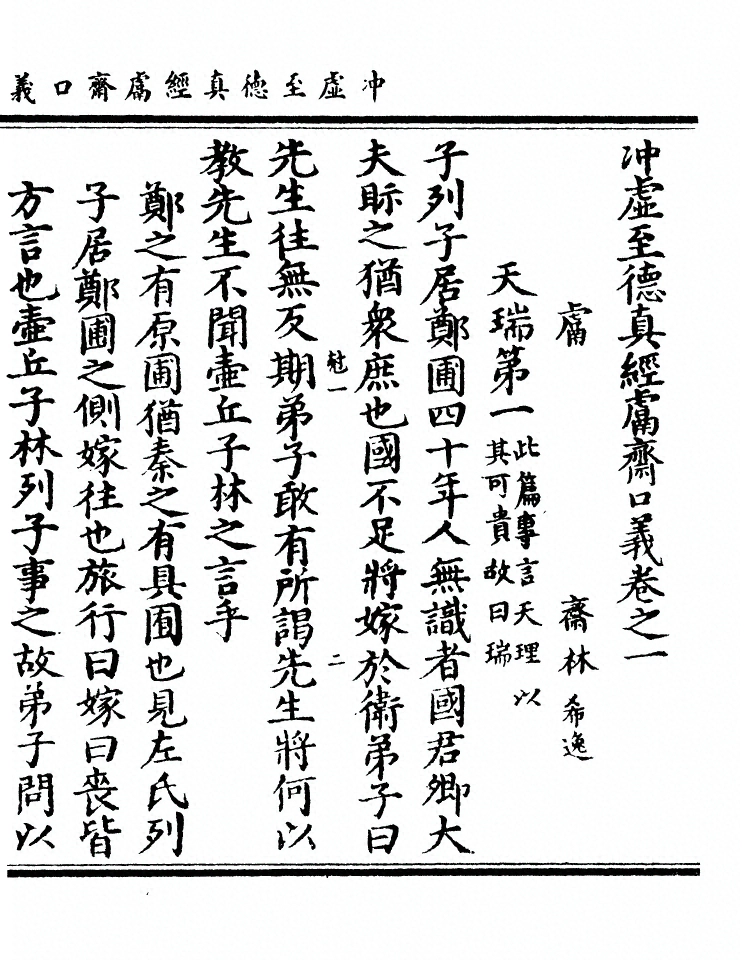 冲虛至德真經鬳齋口義
冲虛至德真經鬳齋口義卷之一
鬳齋林希逸
天瑞第一
此篇專言天理以
其可貴故曰瑞
子列子居鄭圃四十年人無識者國君卿大
夫眎之猶衆庶也國不足將嫁於衛弟子曰
先生往無反期弟子敢有所謁先生將何以
尅一
二
教先生不聞壷丘子林之言乎
鄭之有原圃猶秦之有具囿也見左氏列
子居鄭圃之側嫁往也旅行曰嫁曰喪皆
方言也壷丘子林列子事之故弟子問以